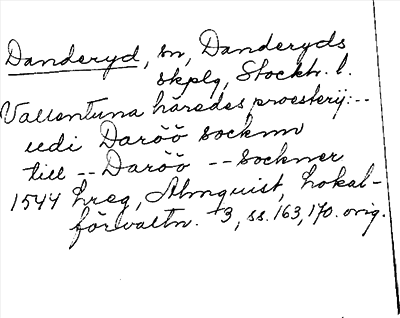 Danderyd, sn, Danderyds
skplg, Stockh. l.
Vallentuna häredes proesterij:--
udi Daröö socknn
till -- Daröö -- sockner
1544 Lreg, Almquist, Lokal-
förvaltn. 3, ss. 163, 170. orig.